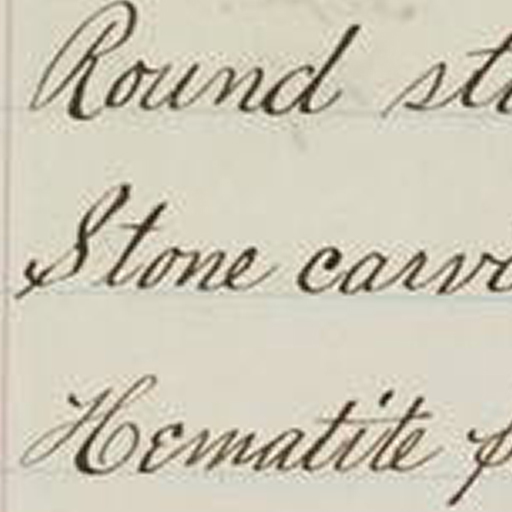 Round st
Stone carv
Hematite